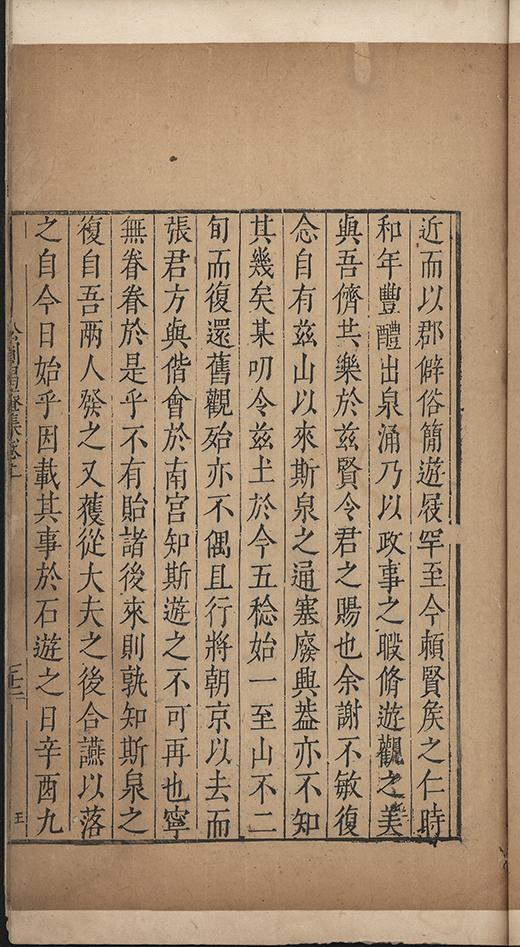 近而以郡僻俗簡遊屐罕至今頼賢矦之仁時
和年豐醴出泉涌乃以政事之暇脩遊觀之美
與吾儕共樂於兹賢令君之賜也余謝不敏復
念自有兹山以來斯泉之通塞廢興葢亦不知
其幾矣某叨令兹土於今五稔始一至山不二
旬而復還舊觀殆亦不偶且行將朝京以去而
張君方與偕會於南宫知斯遊之不可再也寧
無眷眷於是乎不有貽諸後來則孰知斯泉之
複自吾兩人發之又獲從大夫之後合讌以落
之自今日始乎因載其事於石遊之日辛酉九